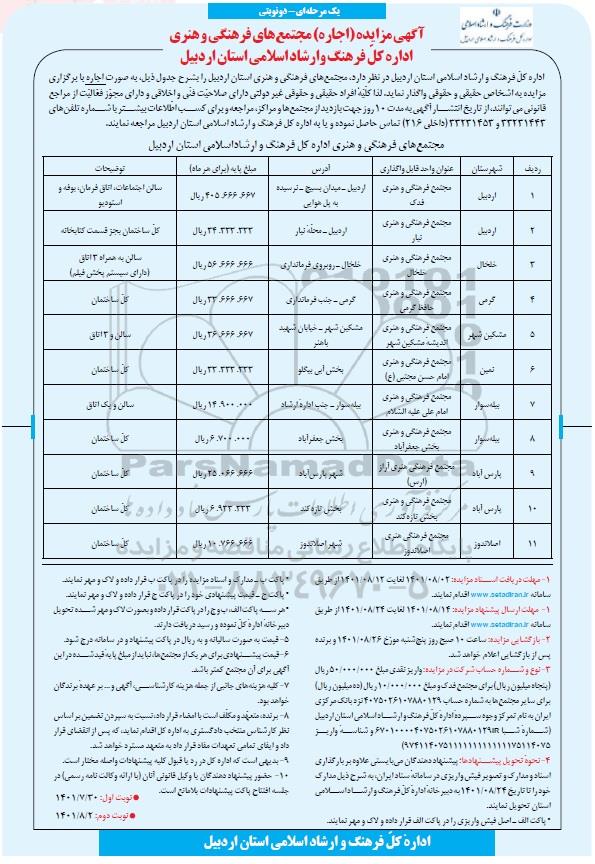 یک مرحله‌ای - دونوبتی
وزارت فرهنگ و ارشاد اسلامی
اداره کل فرهنگ و ارشاد اسلامی اردبیل
آگهی مزایده (اجاره) مجتمع‌های فرهنگی و هنری
اداره کل فرهنگ و ارشاد اسلامی استان اردبیل
اداره کلّ فرهنگ و ارشاد اسلامی استان اردبیل در نظر دارد، مجتمع‌های فرهنگی و هنری استان اردبیل را بشرح جدول ذیل، به صورت اجاره با برگزاری
مزایده به اشخاص حقیقی و حقوقی واگذار نماید. لذا کلّیّهٔ افراد حقیقی و حقوقی غیر دولتی دارای صلاحیّت فنّی و اخلاقی و دارای مجوّز فعّالیّت از مراجع
قانونی می‌توانند، از تاریخ انتشار آگهی به مدت ۱۰ روز جهت بازدید از مجتمع‌ها و مراکز، مراجعه و برای کسب اطلاعات بیشتر با شماره تلفن‌های
۳۳۲۳۱۴۴۳ و ۳۳۲۳۱۴۵۳ (داخلی ۲۱۶) تماس حاصل نموده و یا به اداره کل فرهنگ و ارشاد اسلامی استان اردبیل مراجعه نمایند.
مجتمع‌های فرهنگی و هنری اداره کل فرهنگ و ارشاد اسلامی استان اردبیل
ردیف شهرستان عنوان واحد قابل واگذاری آدرس مبلغ پایه (برای هر ماه) توضیحات
۱ اردبیل مجتمع فرهنگی و هنری فدک اردبیل ـ میدان بسیج ـ نرسیده به پل هوایی ۴۰۵.۶۶۶.۶۶۷ ریال سالن اجتماعات، اتاق فرمان، بوفه و استودیو
۲ اردبیل مجتمع فرهنگی و هنری نیار اردبیل ـ محلّه نیار ۳۴.۳۳۳.۳۳۳ ریال کلّ ساختمان بجز قسمت کتابخانه
۳ خلخال مجتمع فرهنگی و هنری خلخال خلخال ـ روبروی فرمانداری ۵۶.۶۶۶.۶۶۶ ریال سالن به همراه ۳ اتاق (دارای سیستم پخش فیلم)
۴ گرمی مجتمع فرهنگی و هنری حافظ گرمی گرمی ـ جنب فرمانداری ۳۳.۶۶۶.۶۶۷ ریال کلّ ساختمان
۵ مشکین شهر مجتمع فرهنگی و هنری اندیشه مشکین شهر مشکین شهر ـ خیابان شهید باهنر ۳۶.۶۶۶.۶۶۷ ریال سالن و ۳ اتاق
۶ نمین مجتمع فرهنگی و هنری امام حسن مجتبی (ع) بخش آبی بیگلو ۳۳.۳۳۳.۳۳۳ ریال کلّ ساختمان
۷ بیله‌سوار مجتمع فرهنگی و هنری امام علی علیه السّلام بیله‌سوار ـ جنب ادارهٔ ارشاد ۱۴.۹۰۰.۰۰۰ ریال سالن و یک اتاق
۸ بیله‌سوار مجتمع فرهنگی و هنری بخش جعفرآباد بخش جعفرآباد ۶.۷۰۰.۰۰۰ ریال کلّ ساختمان
۹ پارس آباد مجتمع فرهنگی هنری آراز (ارس) شهر پارس آباد ۲۵.۰۶۶.۶۶۶ ریال کلّ ساختمان
۱۰ پارس آباد مجتمع فرهنگی و هنری بخش تازه کند بخش تازه کند ۶.۹۳۳.۳۳۳ ریال کلّ ساختمان
۱۱ اصلاندوز مجتمع فرهنگی و هنری اصلاندوز شهر اصلاندوز ۱۰.۷۶۶.۶۶۶ ریال کلّ ساختمان
ParsNamadData
۱- مهلت دریافت اسناد مزایده: ۱۴۰۱/۰۸/۰۲ لغایت ۱۴۰۱/۰۸/۱۲ از طریق
سامانه www.setadiran.ir اقدام نمایند.
۱- مهلت ارسال پیشنهاد مزایده: ۱۴۰۱/۰۸/۱۴ لغایت ۱۴۰۱/۰۸/۲۴ از طریق
سامانه www.setadiran.ir اقدام نمایند.
۲- بازگشایی مزایده: ساعت ۱۰ صبح روز پنج‌شنبه مورّخ ۱۴۰۱/۰۸/۲۶ و برنده
پس از بازگشایی اعلام خواهد شد.
۳- نوع و شماره حساب شرکت در مزایده: واریز نقدی مبلغ ۵۰/۰۰۰/۰۰۰ ریال
(پنجاه میلیون ریال) برای مجتمع فدک و مبلغ ۱۰/۰۰۰/۰۰۰ ریال (ده میلیون ریال)
برای سایر مجتمع‌ها به شماره حساب ۴۰۷۵۰۲۶۱۰۷۸۸۰۱۲۹ نزد بانک مرکزی
ایران به نام تمرکز وجوه سپرده اداره کل فرهنگ و ارشاد اسلامی استان اردبیل
۴- نحوهٔ تحویل پیشنهادها: پیشنهاد دهندگان می‌بایستی علاوه بر بارگذاری
اسناد و مدارک و تصویر فیش واریزی در سامانه ستاد ایران، به شرح ذیل مدارک
خود را تا تاریخ ۱۴۰۱/۰۸/۲۴ به دبیر خانه ادارهٔ کلّ فرهنگ و ارشاد اسلامی
استان تحویل نمایند.
* پاکت الف ـ اصل فیش واریزی را در پاکت الف قرار داده و لاک و مهر نمایند.
* پاکت ب ـ مدارک و اسناد مزایده را در پاکت ب قرار داده و لاک و مهر نمایند.
* پاکت ج ـ قیمت پیشنهادی خود را در پاکت ج قرار داده و لاک و مهر نمایند.
* هر سه پاکت الف، ب و ج را در پاکت قرار داده و بصورت لاک و مهر شده تحویل
دبیرخانه ادارهٔ کلّ نموده و رسید دریافت دارند.
۵- قیمت به صورت سالیانه و به ریال در پاکت پیشنهاد و در سامانه درج شود.
۶- قیمت پیشنهادی برای هر یک از مجتمع‌ها، نباید از مبلغ پایه قید شده در این
آگهی برای آن مجتمع کمتر باشد.
۷- کلیه هزینه‌های جانبی از جمله هزینه کارشناسی، آگهی و ... بر عهدهٔ برندگان
خواهد بود.
۸- برنده، متعهّد و مکلّف است با امضاء قرار داد، نسبت به سپردن تضمین بر اساس
نظر کارشناس منتخب دادگستری به ادارهٔ کل اقدام نماید، که پس از انقضای قرار
داد و ایفای تمامی تعهدات مفاد قرار داد به متعهد مسترد خواهد شد.
۹- بدیهی است که اداره کل در رد یا قبول کلیه پیشنهادات واصله مختار است.
۱۰- حضور پیشنهاد دهندگان یا وکیل قانونی آنان (با ارائه وکالت نامه رسمی) در
جلسه افتتاح پاکت پیشنهادات بلامانع است.
نوبت اول: ۱۴۰۱/۷/۳۰
نوبت دوم: ۱۴۰۱/۸/۲
ادارهٔ کلّ فرهنگ و ارشاد اسلامی استان اردبیل